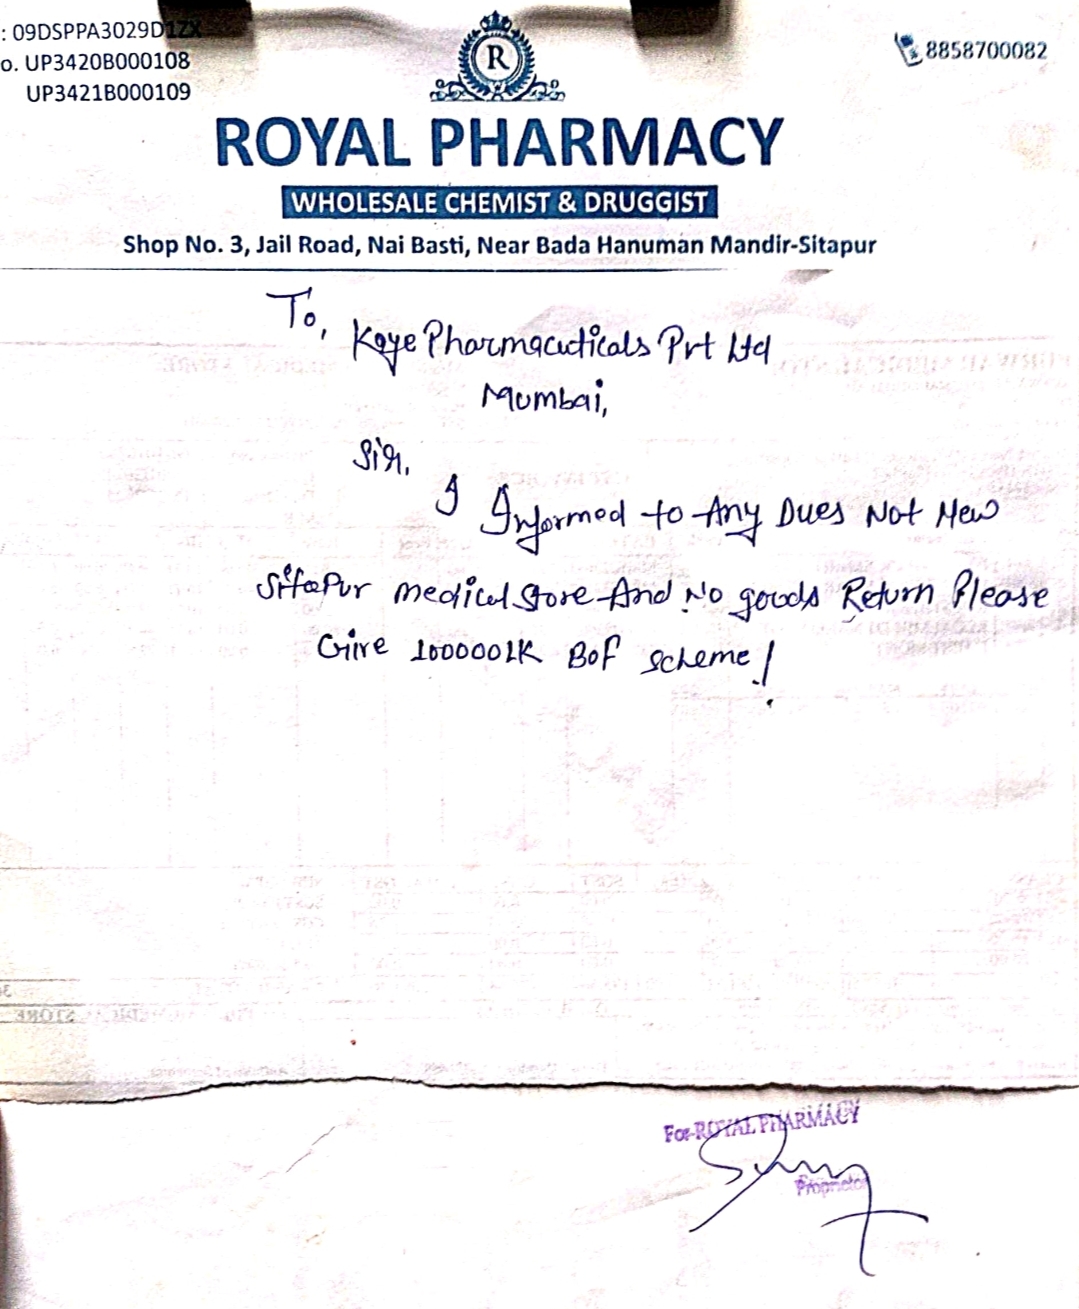 : 09DSPPA3029D1ZX
o. UP3420B000108
UP3421B000109
8858700082
R
ROYAL PHARMACY
WHOLESALE CHEMIST & DRUGGIST
Shop No. 3, Jail Road, Nai Basti, Near Bada Hanuman Mandir-Sitapur
To,
Kaye Pharmacuticals Pvt Ltd
Mumbai,
Sir,
I Informed to Any Dues Not New
Sitapur medical Store And No goods Return Please
Give 100000LK BOF scheme!
For-ROYAL PHARMACY
Proprietor